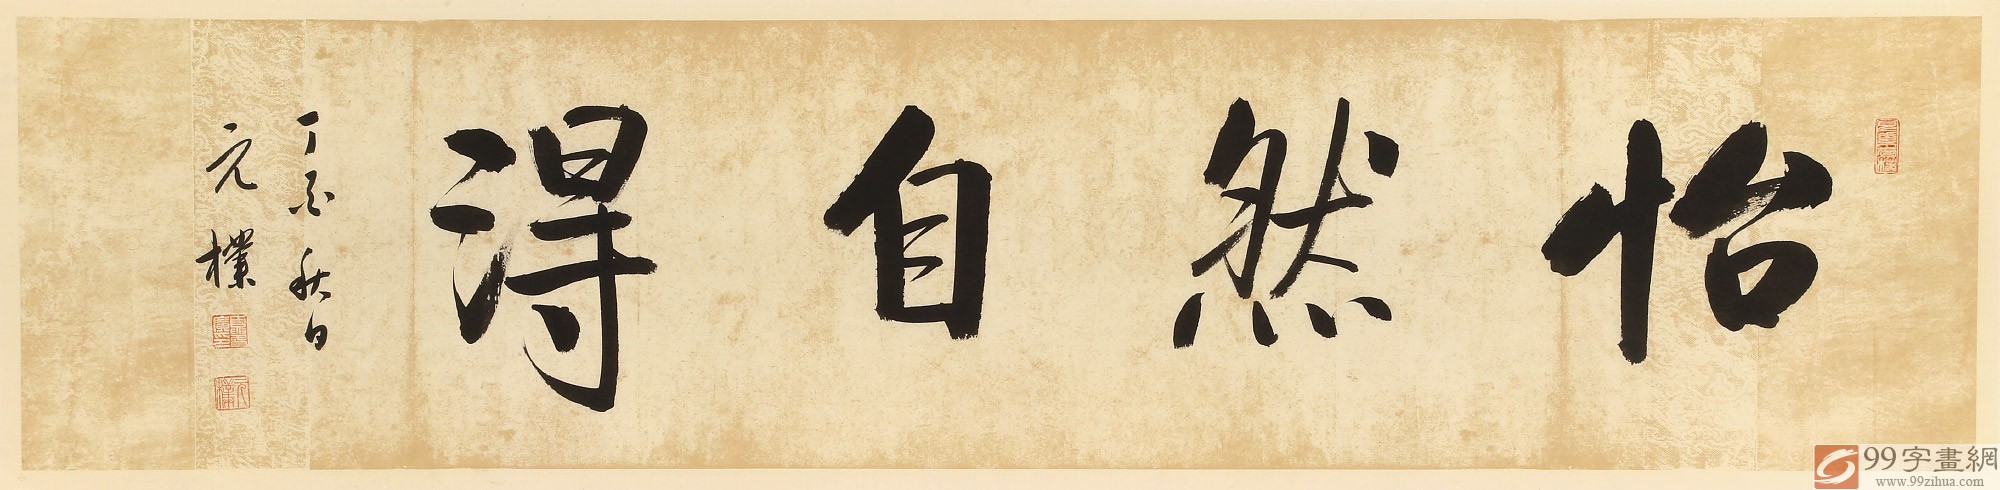 怡然自得
丁酉秋月
元樸
99字畫網
www.99zihua.com